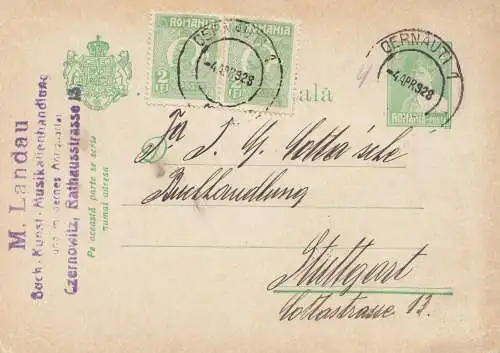 ROMANIA
2
LEI
LEI
CERNĂUȚI 7
-4.APR 928
CERNĂUȚI 7
-4.APR 928
ROMANIA
tala
M. Landau
Buch-, Kunst-, Musikalienhandlung
und modernes Antiquariat
Czernowitz, Rathausstrasse 13
Pe această parte se scrie
numai adresa
Fa J. G. Cotta'sche
Buchhandlung
Stuttgart
Cottastrasse 13.